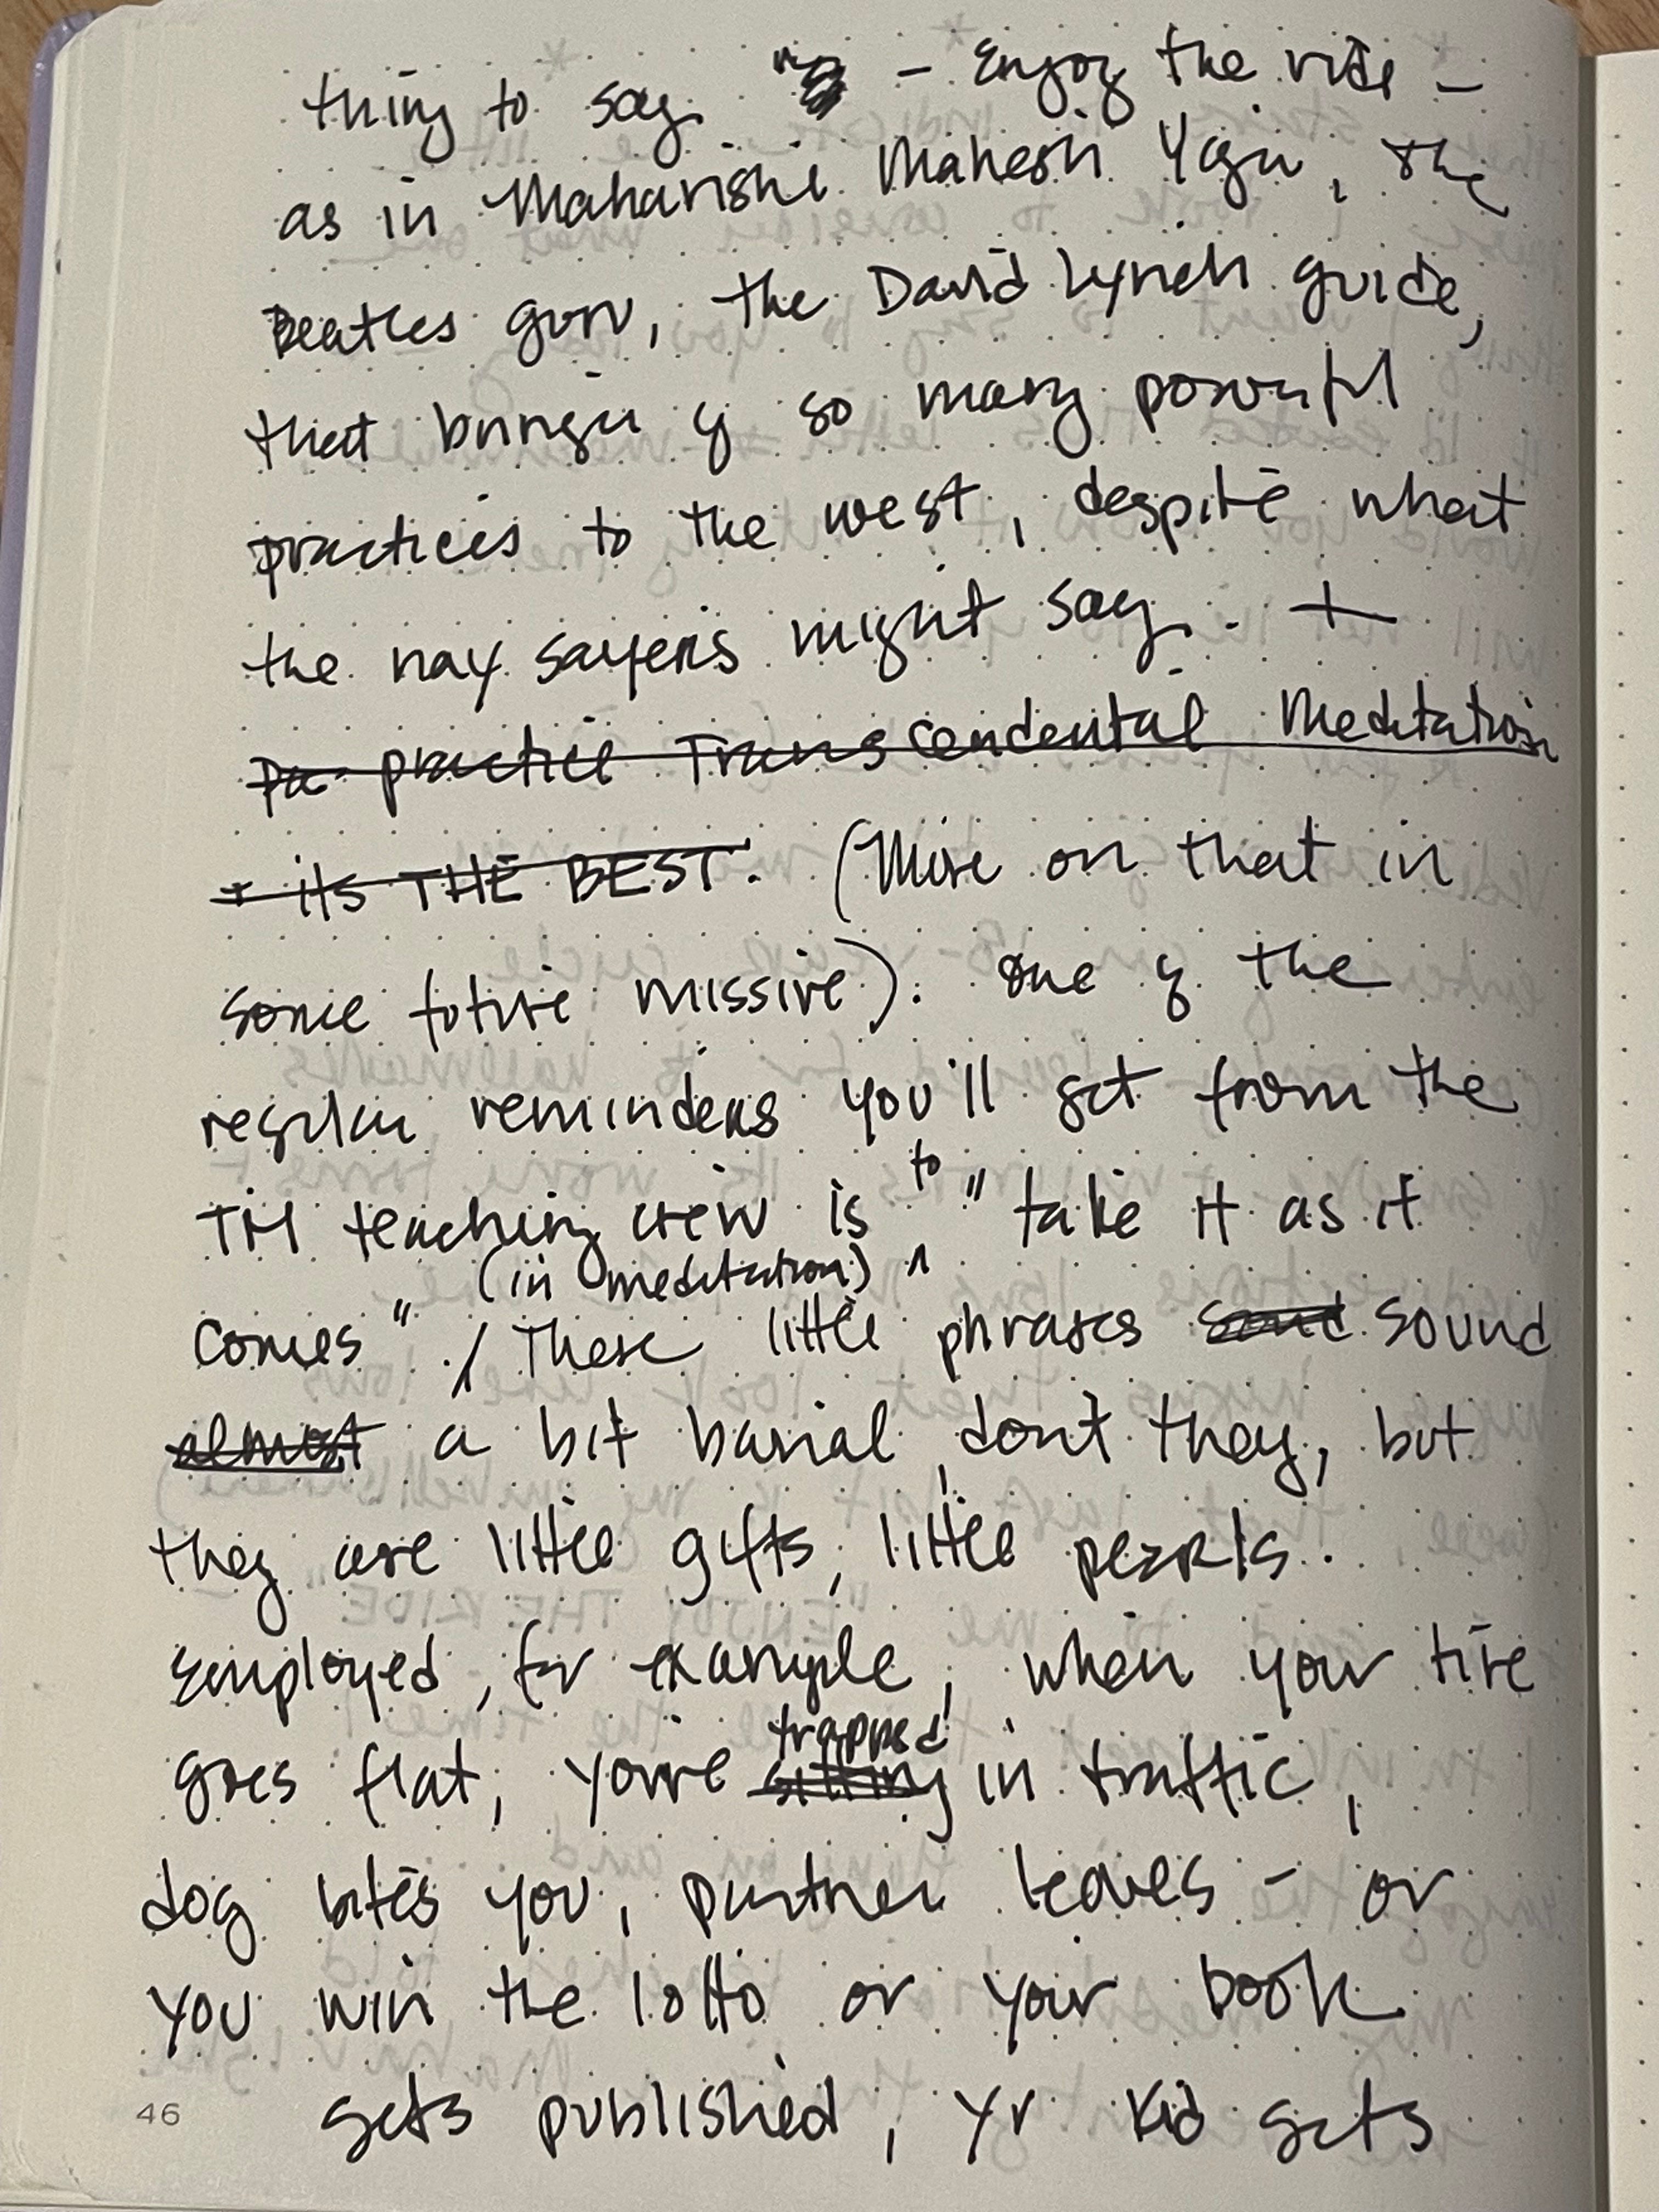 thing to say – Enjoy the ride –
as in Maharishi Mahesh Yogi, the
Beatles guru, the David Lynch guide,
that bringer of so many powerful
practices to the west, despite what
the nay sayers might say. +
practice Transcendental Meditation
+ its THE BEST. (More on that in
some future missive). One of the
regular reminders you'll get from the
to
TM teaching crew is " take it as it
(in meditation)
comes". These little phrases sound sound
almost a bit banal, don't they, but
they are little gifts, little pearls.
Employed, for example, when your tire
trapped
goes flat, you're sitting in traffic,
dog bites you, partner leaves – or
you win the lotto or your book
gets published, yr kid gets
46